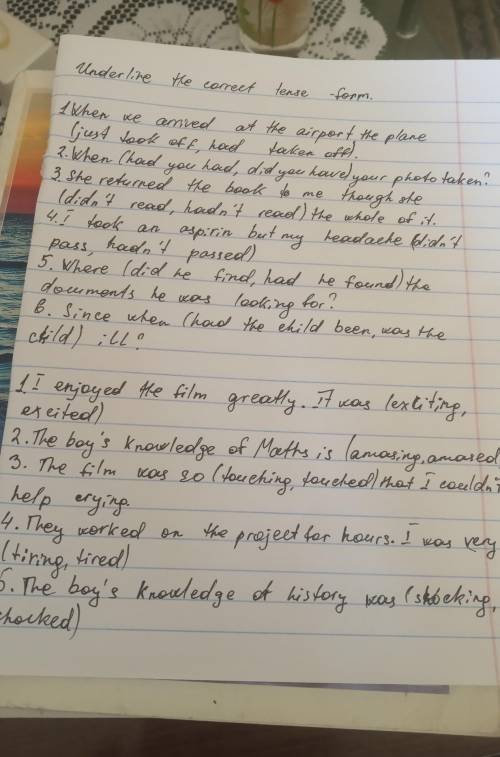 Underline the correct tense-form.
1.When we arrived at the airport, the plane
(just took off, had taken off).
2. When (had you had, did you have) your photo taken?
3. She returned the book to me though she
(didn't read, hadn't read) the whole of it.
4. I took an aspirin but my headache (didn't
pass, hadn't passed)
5. Where (did he find, had he found) the
documents he was looking for?
6. Since when (had the child been, was the
child) ill?
1. I enjoyed the film greatly. It was (exciting,
excited)
2. The boy's knowledge of Maths is (amasing, amased
3. The film was so (touching, touched) that I couldn't
help crying.
4. They worked on the project for hours. I was very
(tiring, tired)
5. The boy's knowledge of history was (shocking,
shocked)